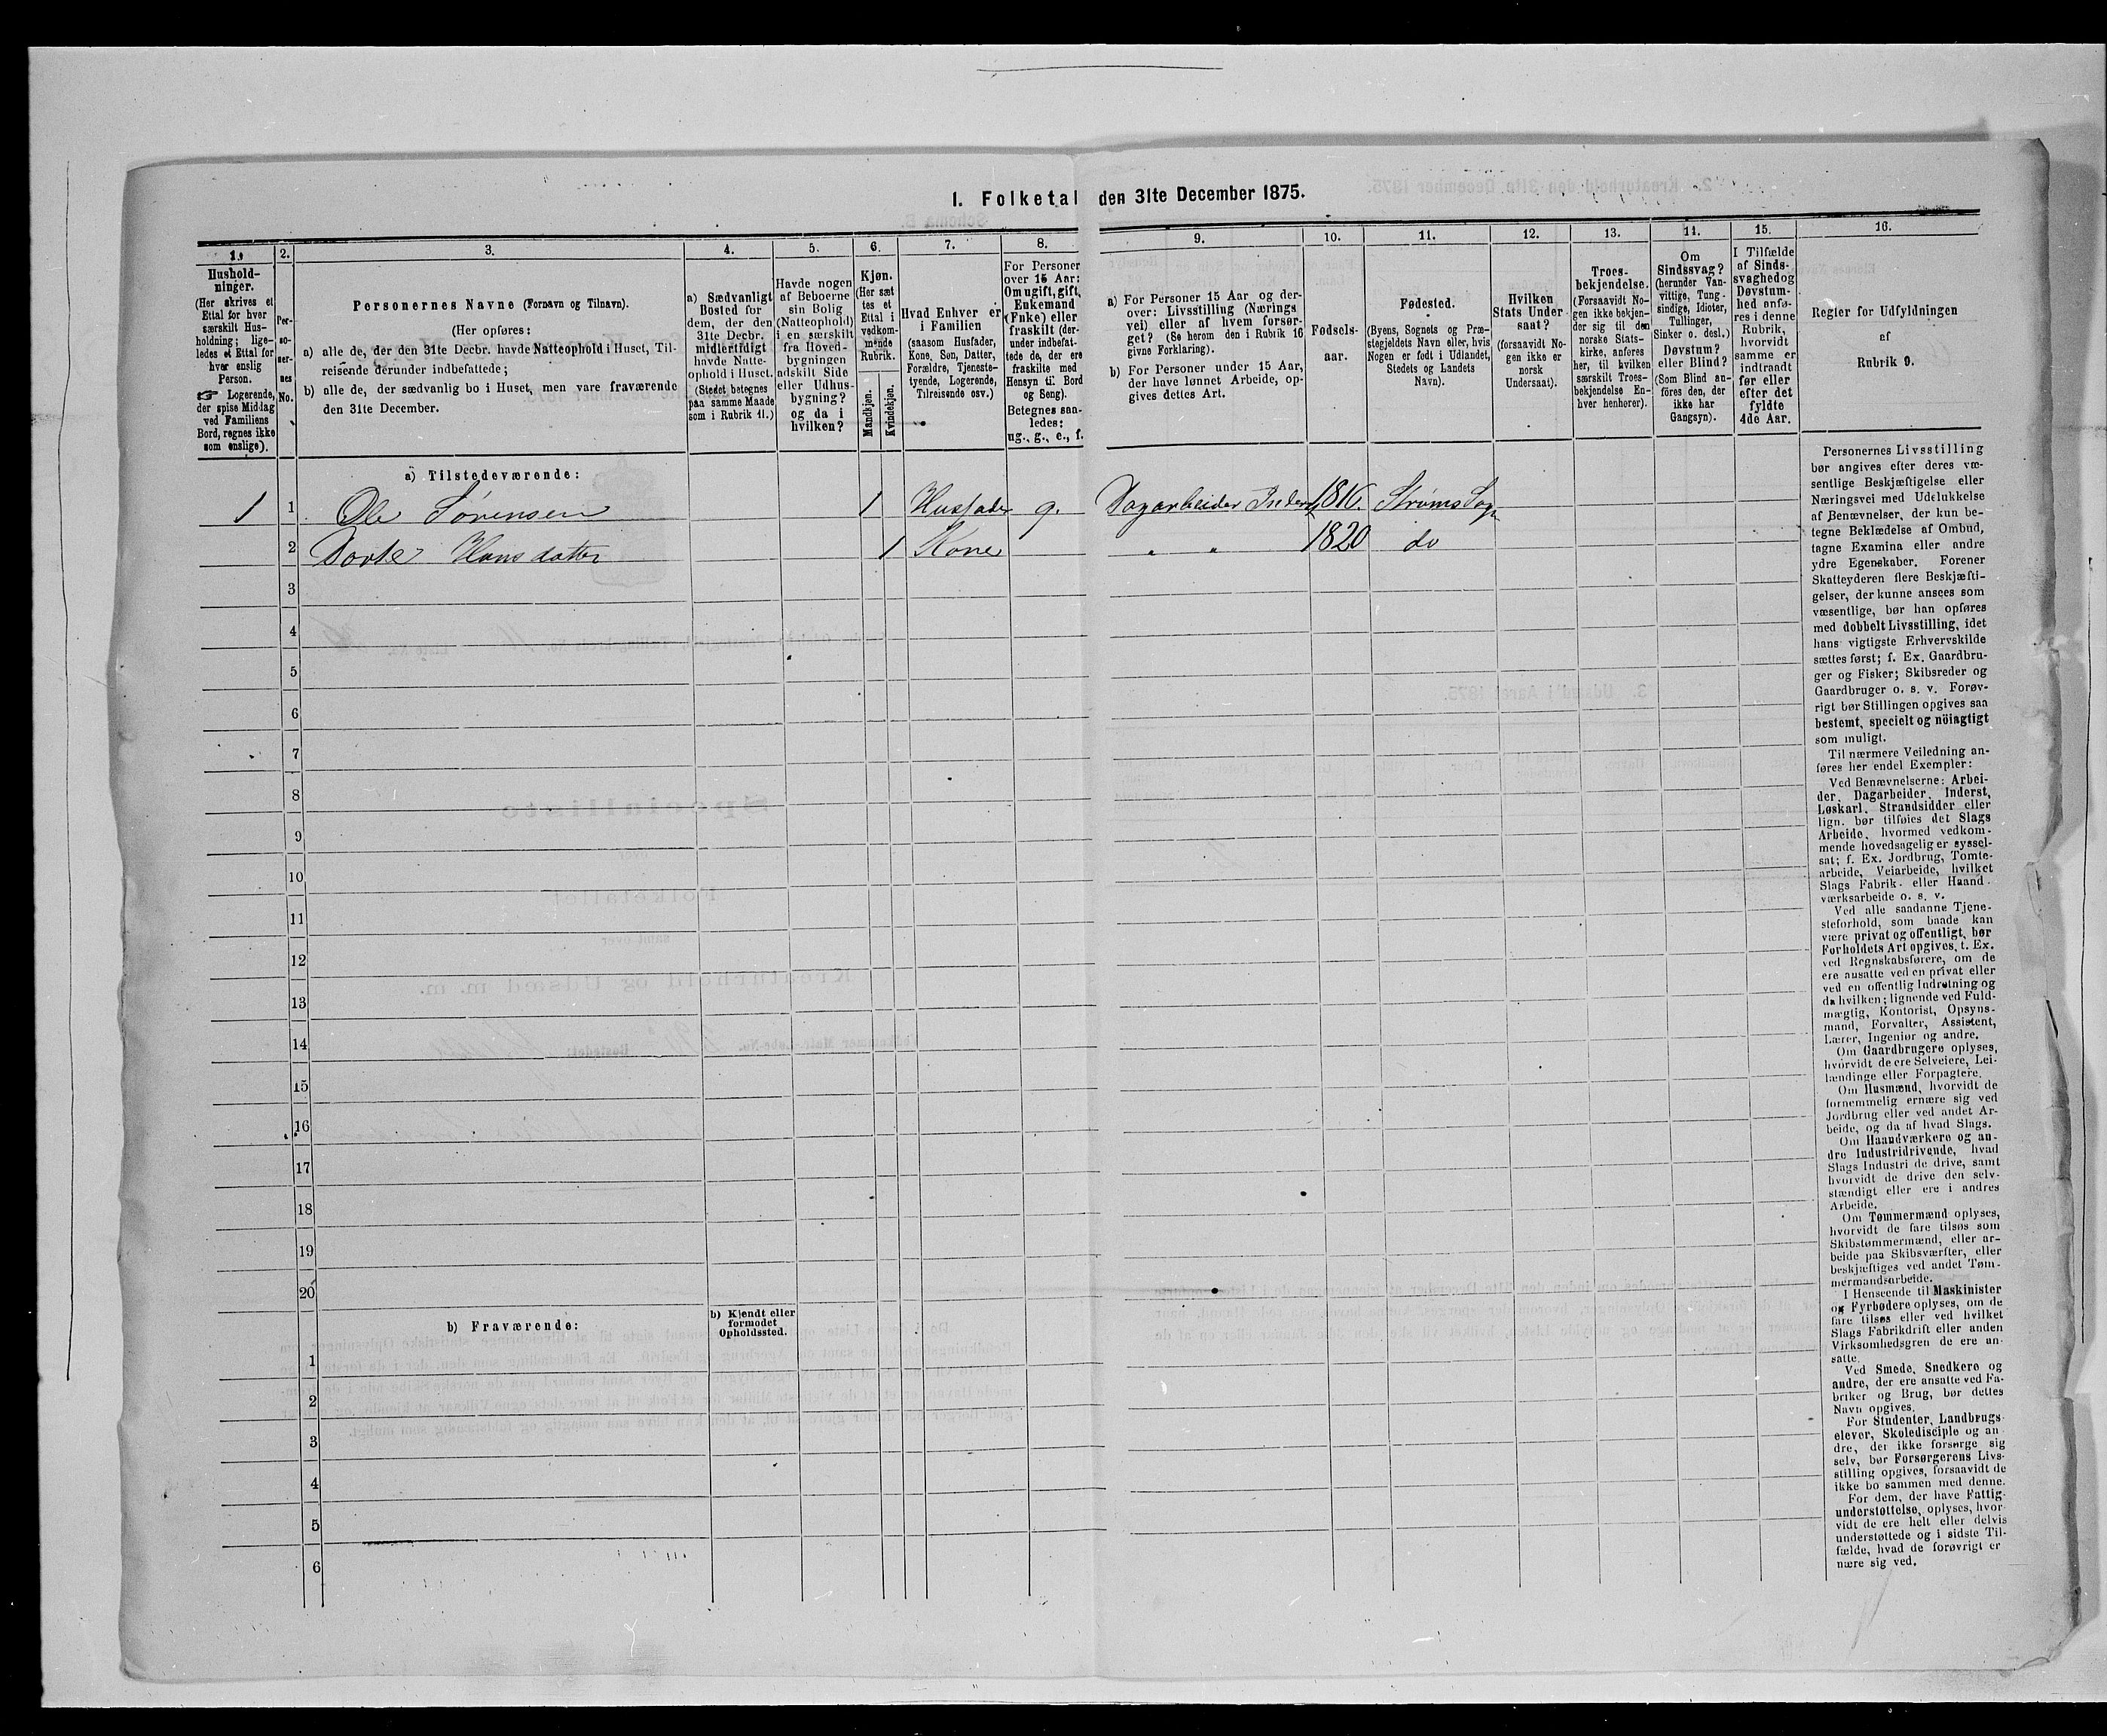 1. Folketal den 31te December 1875.
1.
Hushold-
ninger.
(Her skrives et
Ettal for hver
særskilt Hus-
holdning; lige-
ledes et Ettal for
hver enslig
Person.
☞ Logerende,
der spise Middag
ved Familiens
Bord, regnes ikke
som enslige).
2.
Per-
so-
ner-
nes
No.
3.
Personernes Navne (Fornavn og Tilnavn).
(Her opføres:
a) alle de, der den 31te Decbr. havde Natteophold i Huset, Til-
reisende derunder indbefattede;
b) alle de, der sædvanlig bo i Huset, men vare fraværende
den 31te December.
4.
a) Sædvanligt
Bosted for
dem, der den
31te Decbr.
midlertidigt
havde Natte-
ophold i Huset.
(Stedet betegnes
paa samme Maade
som i Rubrik 11.)
5.
Havde nogen
af Beboerne
sin Bolig
(Natteophold)
i en særskilt
fra Hoved-
bygningen
adskilt Side
eller Udhus-
bygning?
og da i
hvilken?
6.
Kjøn.
(Her sæt
tes et
Ettal i
vedkom-
mende
Rubrik.
Mandkjøn.
Kvindekjøn.
7.
Hvad Enhver er
i Familien
(saasom Husfader,
Kone, Søn, Datter,
Forældre, Tjeneste-
tyende, Logerende,
Tilreisende osv.)
8.
For Personer
over 15 Aar:
Om ugift, gift,
Enkemand
(Enke) eller
fraskilt (der-
under indbefat-
tede de, der ere
fraskilte med
Hensyn til Bord
og Seng).
Betegnes saa-
ledes:
ug., g., e., f.
9.
a) For Personer 15 Aar og der-
over: Livsstilling (Nærings
vei) eller af hvem forsør-
get? (Se herom den i Rubrik 16
givne Forklaring).
b) For Personer under 15 Aar,
der have lønnet Arbeide, op-
gives dettes Art.
10.
Fødsels-
aar.
11.
Fødested.
(Byens, Sognets og Præ-
stegjeldets Navn eller, hvis
Nogen er født i Udlandet,
Stedets og Landets
Navn).
12.
Hvilken
Stats Under
saat?
(forsaavidt No-
gen ikke er
norsk
Undersaat).
13.
Troes-
bekjendelse.
(Forsaavidt No-
gen ikke bekjen-
der sig til den
norske Stats-
kirke, anføres
her, til hvilken
særskilt Troes-
bekjendelse En-
hver henhører).
11.
Om
Sindssvag?
(herunder Van-
vittige, Tung-
sindige, Idioter,
Tullinger,
Sinker o. desl.)
Døvstum?
eller Blind?
(Som Blind an-
føres den, der
ikke har
Gangsyn).
15.
I Tilfælde
af Sinds-
svaghed og
Døvstum-
hed anfø-
res i denne
Rubrik,
hvorvidt
samme er
indtraadt
før eller
efter det
fyldte
4de Aar.
16.
Regler for Udfyldningen
af
Rubrik 9.
a) Tilstedeværende:
1 1 Ole Sørensen 1 Husfader g. Dagarbeider Inderst 1816. Strøms Sogn
2 Dorte Hansdatter 1 Kone " " 1820 do
3
4
5
6
7
8
9
10
11
12
13
14
15
16
17
18
19
20
b) Fraværende:
b) Kjendt eller
formodet
Opholdssted.
1
2
3
4
5
6
Personernes Livsstilling
bør angives efter deres væ-
sentlige Beskjæftigelse eller
Næringsvei med Udelukkelse
af Benævnelser, der kun be-
tegne Beklædelse af Ombud,
tagne Examina eller andre
ydre Egenskaber. Forener
Skatteyderen flere Beskjæfti-
gelser, der kunne ansees som
væsentlige, bør han opføres
med dobbelt Livsstilling, idet
hans vigtigste Erhvervskilde
sættes først; f. Ex. Gaardbru-
ger og Fisker; Skibsreder og
Gaardbruger o. s. v. Forøv-
rigt bør Stillingen opgives saa
bestemt, specielt og nöiagtigt
som muligt.
Til nærmere Veiledning an-
føres her endel Exempler:
Ved Benævnelserne: Arbei-
der, Dagarbeider, Inderst,
Løskarl, Strandsidder eller
lign. bør tilføies det Slags
Arbeide, hvormed vedkom-
mende hovedsagelig er syssel-
sat; f. Ex. Jordbrug, Tomte-
arbeide, Veiarbeide, hvilket
Slags Fabrik- eller Haand-
værksarbeide o. s. v.
Ved alle saadanne Tjene-
steforhold, som baade kan
være privat og offentligt, bør
Forholdets Art opgives, t. Ex.
ved Regnskabsførere, om de
ere ansatte ved en privat eller
ved en offentlig Indretning og
da hvilken; lignende ved Fuld-
mægtig, Kontorist, Opsyns-
mand, Forvalter, Assistent,
Lærer, Ingeniør og andre.
Om Gaardbrugere oplyses,
hvorvidt de ere Selveiere, Lei-
lændinge eller Forpagtere.
Om Husmænd, hvorvidt de
fornemmelig ernære sig ved
Jordbrug eller ved andet Ar-
beide, og da af hvad Slags.
Om Haandværkere og an-
dre Industridrivende, hvad
Slags Industri de drive, samt
hvorvidt de drive den selv-
stændigt eller ere i andres
Arbeide.
Om Tømmermænd oplyses,
hvorvidt de fare tilsøs som
Skibstømmermænd, eller ar-
beide paa Skibsværfter, eller
beskjæftiges ved andet Tøm-
mermandsarbeide.
I Henseende til Maskinister
og Fyrbødere oplyses, om de
fare tilsøs eller ved hvilket
Slags Fabrikdrift eller anden
Virksomhedsgren de ere an-
satte.
Ved Smede, Snedkere og
andre, der ere ansatte ved Fa-
briker og Brug, bør dettes
Navn opgives.
For Studenter, Landbrugs-
elever, Skoledisciple og an-
dre, der ikke forsørge sig
selv, bør Forsørgerens Livs-
stilling opgives, forsaavidt de
ikke bo sammen med denne.
For dem, der have Fattig-
understøttelse, oplyses, hvor-
vidt de ere helt eller delvis
understøttede og i sidste Til-
fælde, hvad de forøvrigt er
nære sig ved.